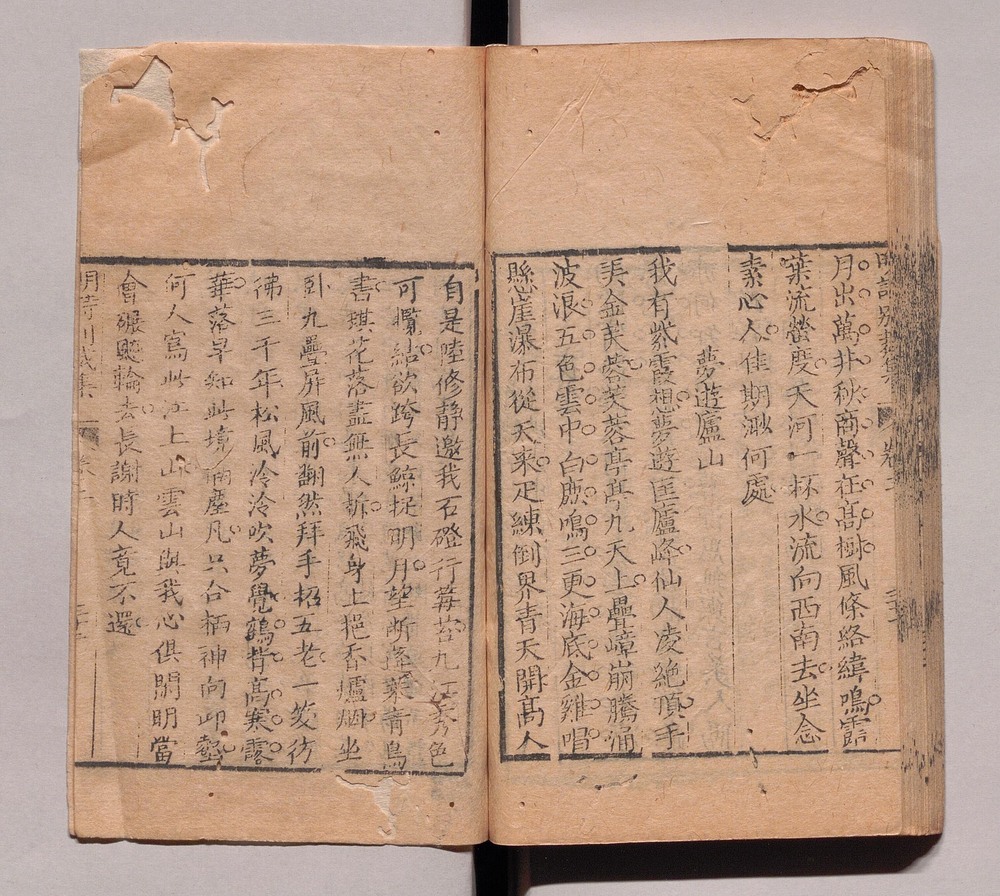 月出萬井秋商聲在高樹風條絡緯鳴露
葉流螢度天河一杯水流向西南去坐念
素心人佳期渺何處
夢遊廬山
我有紫霞想夢遊匡廬峰仙人凌絶頂手
美金芙蓉芙蓉亭亭九天上疊嶂崩騰涌
波浪五色雲中白鹿鳴三更海底金雞唱
懸崖瀑布從天來疋練倒界青天開高人
自是陸修靜邀我石磴行莓苔九江秀色
可攬結欲跨長鯨捉明月望斷蓬萊青鳥
書琪花落盡無人折飛身上挹香爐烟坐
臥九疊屏風前翻然拜手招五老一笑彷
彿三千年松風泠泠吹夢覺鶴背高寒露
華落早知此境隔塵凡只合栖神向丘壑
何人寫此江上山雲山與我心俱閒明當
會礙飈輪去長謝時人竟不還